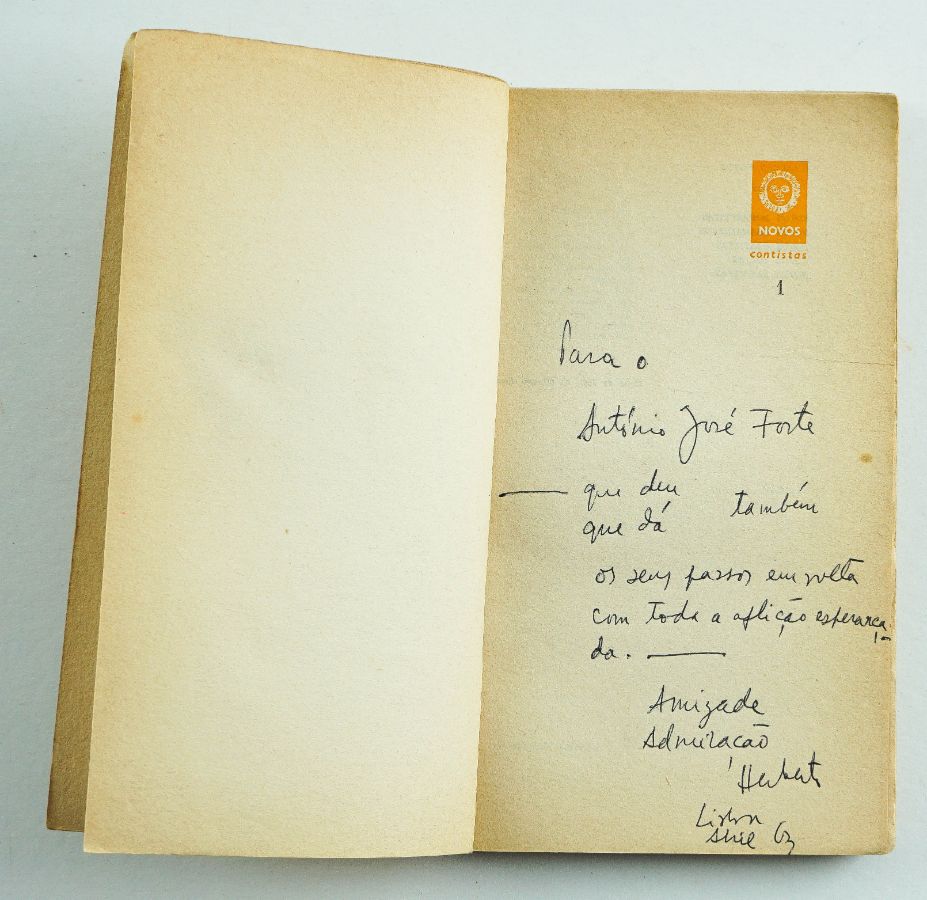 NOVOS
contistas
1
Para o
António José Forte
— que deu
que dá também
os seus passos em volta
com toda a aflição esperança-
da. —
Amizade
Admiração
Herberto
Lisboa
Abril 63